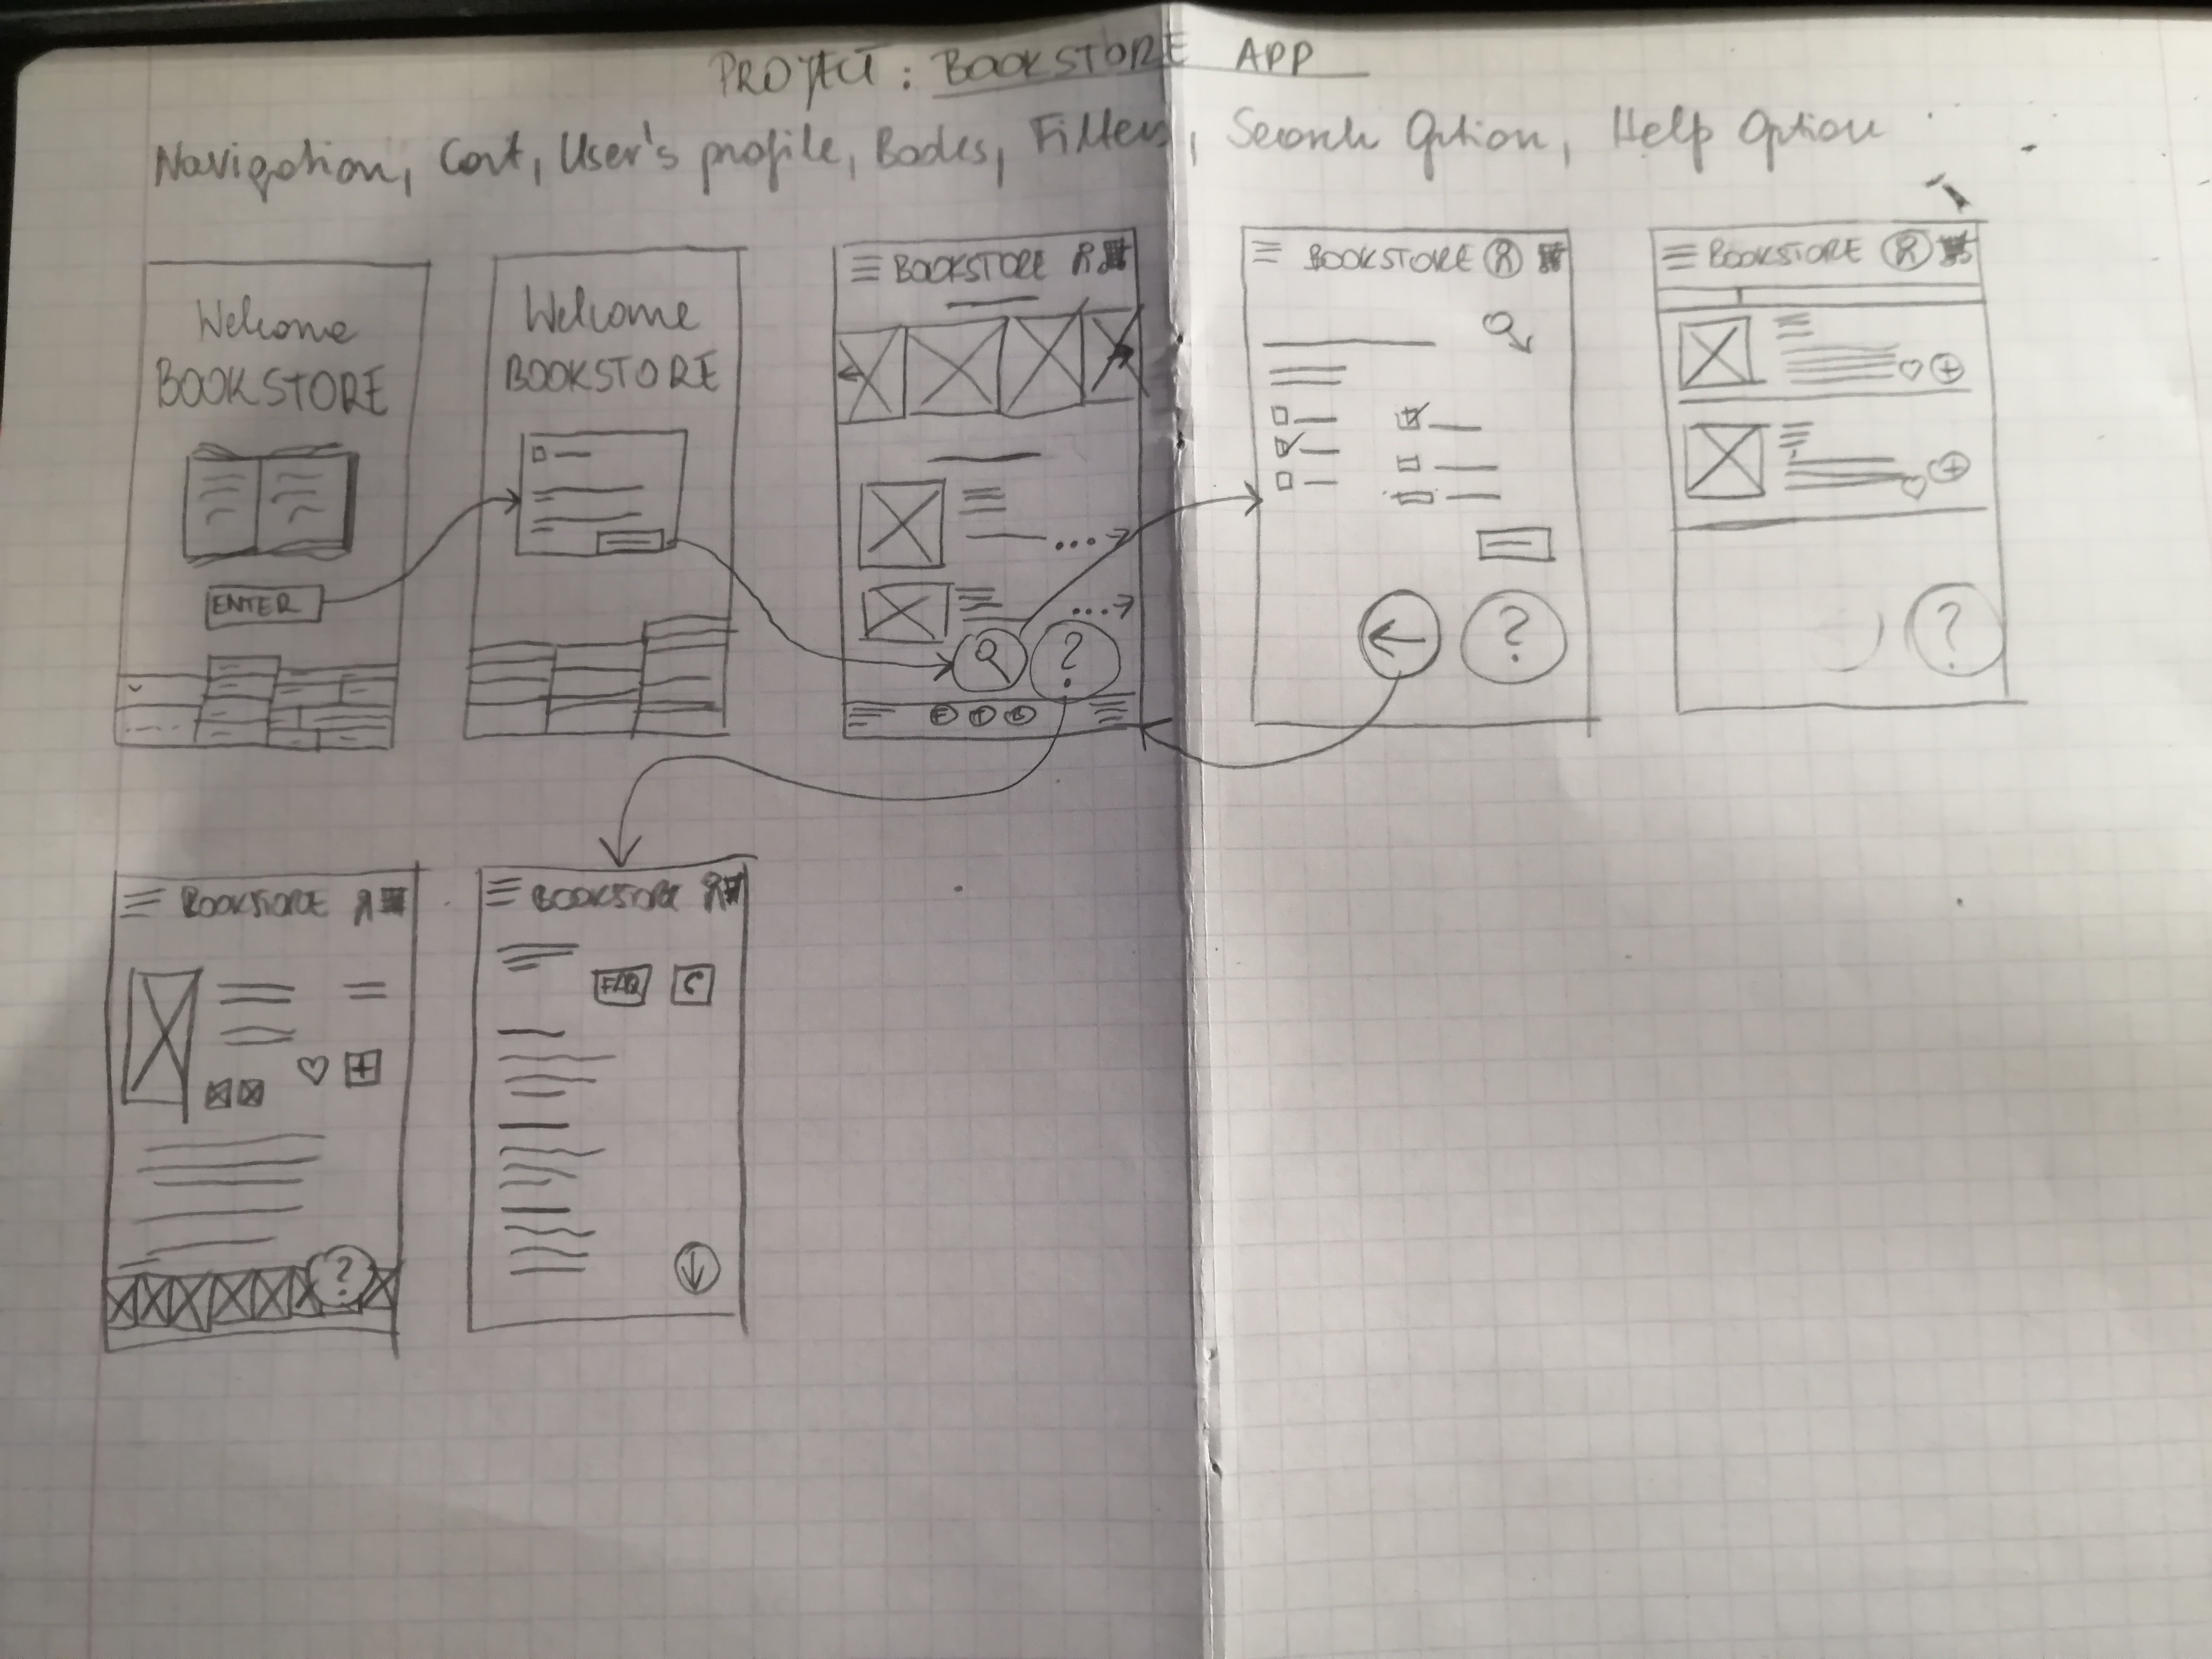 PROJECT: BOOKSTORE APP
Navigation, Cart, User's profile, Books, Filters, Search Option, Help Option
Welcome
BOOKSTORE
ENTER
Welcome
BOOKSTORE
BOOKSTORE
?
BOOKSTORE
?
BOOKSTORE
?
BOOKSTORE
?
BOOKSTORE
FAQ